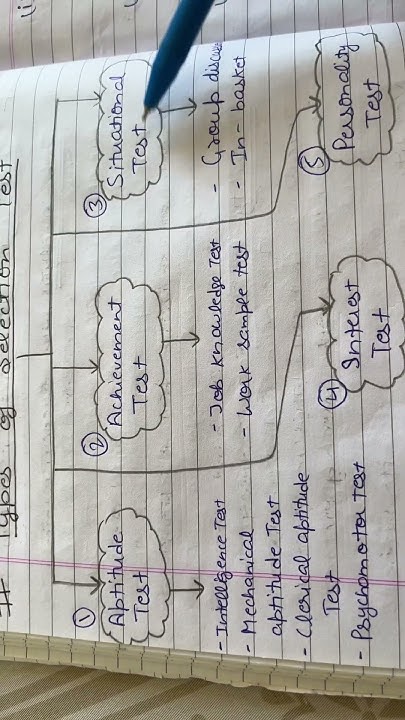 # Types of Selection Test
① Aptitude
Test
- Intelligence Test
- Mechanical
aptitude Test
- Clerical aptitude
Test
- Psychomotor test
② Achievement
Test
- Job knowledge Test
- Work sample test
③ Situational
Test
- Group discus
- In - basket
④ Interest
Test
⑤ Personality
Test